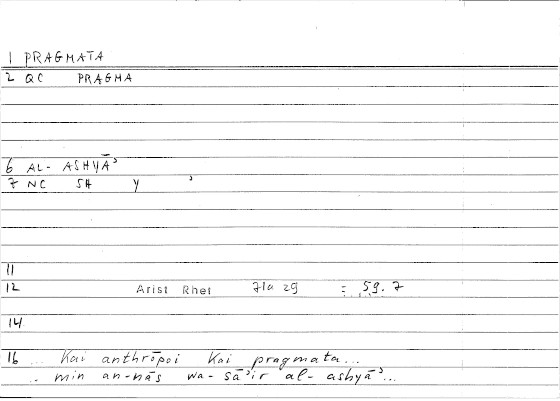 1 PRAGMATA
2 QC PRAGMA
6 AL- ASHYĀʾ
7 NC SH Y ʾ
11
12 Arist Rhet 71a 29 = 59. 7
14
16 ... Kai anthrōpoi Kai pragmata...
.. min an-nās wa- sāʾir al- ashyāʾ...